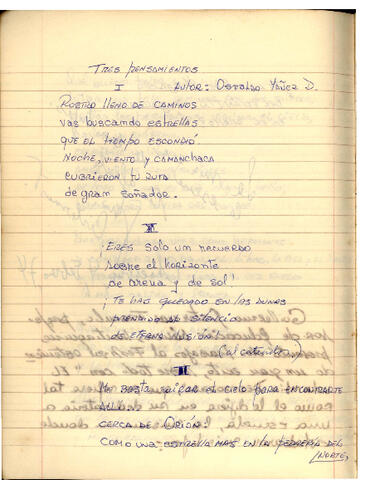 TRES PENSAMIENTOS
I AUTOR: Osvaldo Yáñez D.
ROSTRO LLENO DE CAMINOS
vas buscando ESTRELLAS
QUE EL TIEMPO ESCONDIÓ.
NOCHE, VIENTO Y CAMANCHACA
CUBRIERON TU RUTA
de gran soñador.
II
¡ERES solo un recuerdo
sobre el horizonte
de arena y de sol!
¡TE HAS quedado EN LAS DUNAS
prendido al silencio
de eterna ilusión!
III
ME basta mirar el cielo para ENCONTRARTE
ALLÍ
CERCA DE ORIÓN!
COMO UNA ESTRELLA MAS EN LA DEL
NORTE,